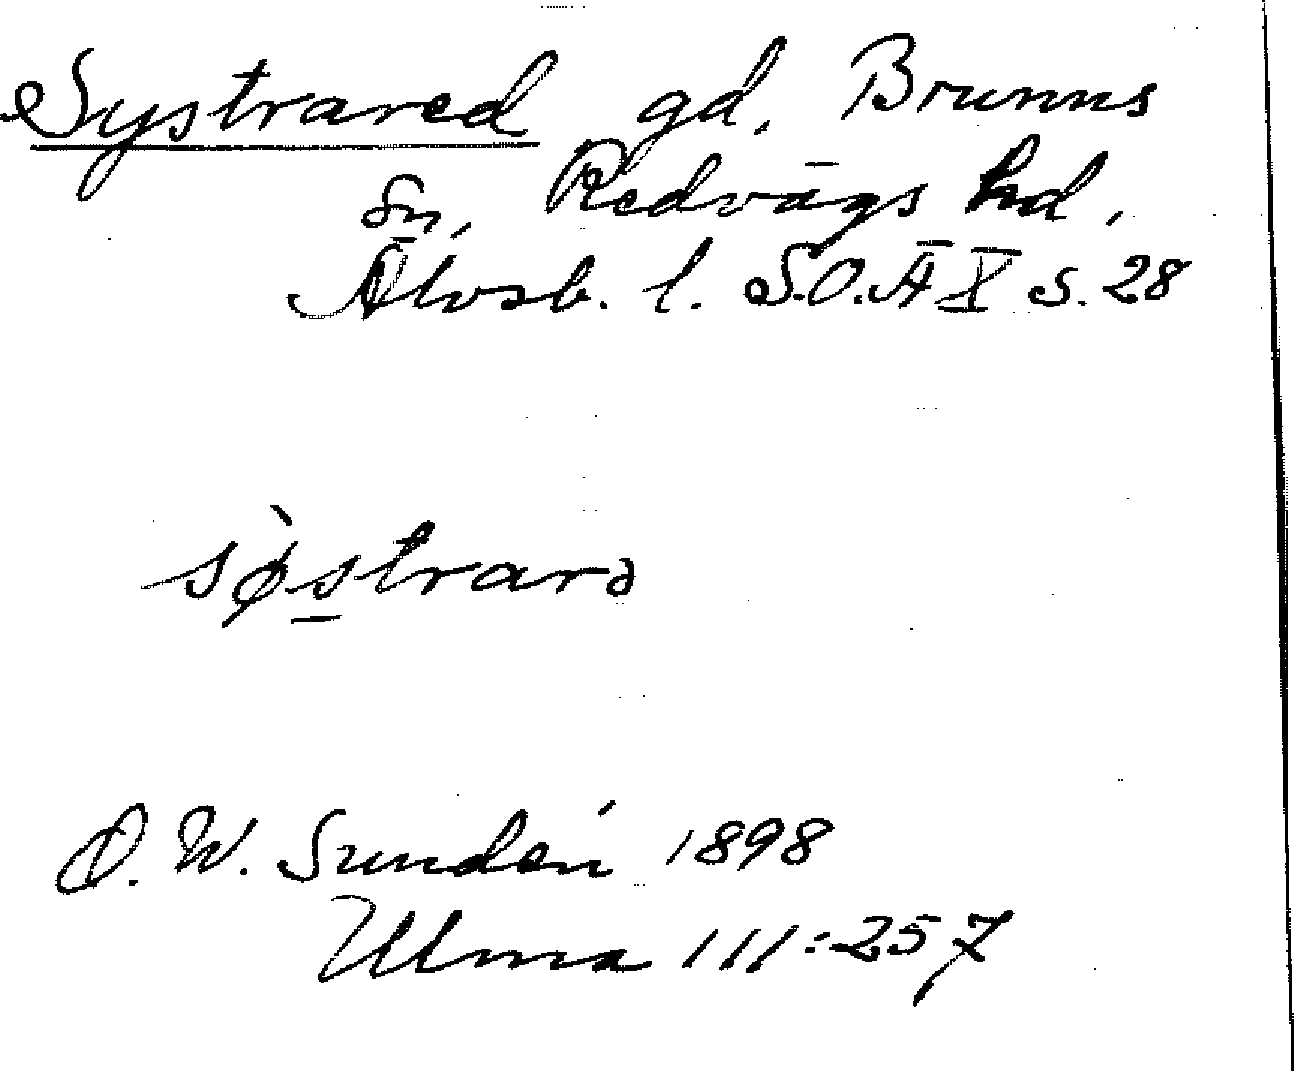 Systrared gd, Brunns
sn, Redvägs hd,
Älvsb. l. S.O.Ä X s. 28
sø̀s̲trarə
D. W. Sundén 1898
Ulma 111:257